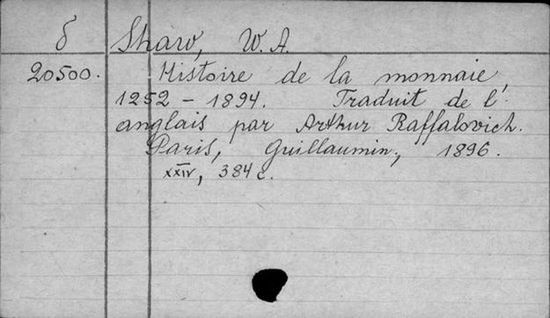 б Shaw, W. A.
20500. Histoire de la monnaie,
1252 – 1894. Traduit de l'
anglais par Arthur Raffalovich.
Paris, Guillaumin, 1896.
XXIV, 384 c.